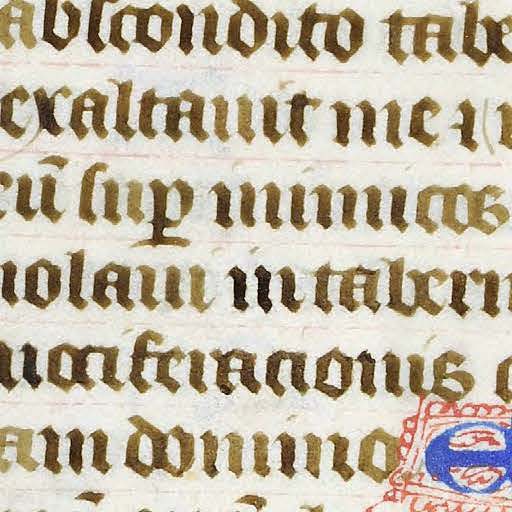 abscondito tabe
exaltauit me ⁊
eū sup̄ inimicos
molaui in tabern
uociferacionis
am domino E